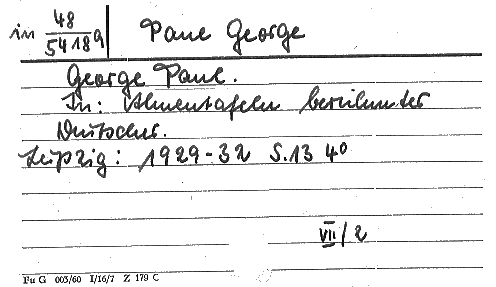 in 48/54189 Paul George
George Paul.
In: Ahnentafeln berühmter
Deutscher.
Leipzig: 1929-32 S.13 4°
VII/2
Fu G 005/60 I/16/7 Z 179 C